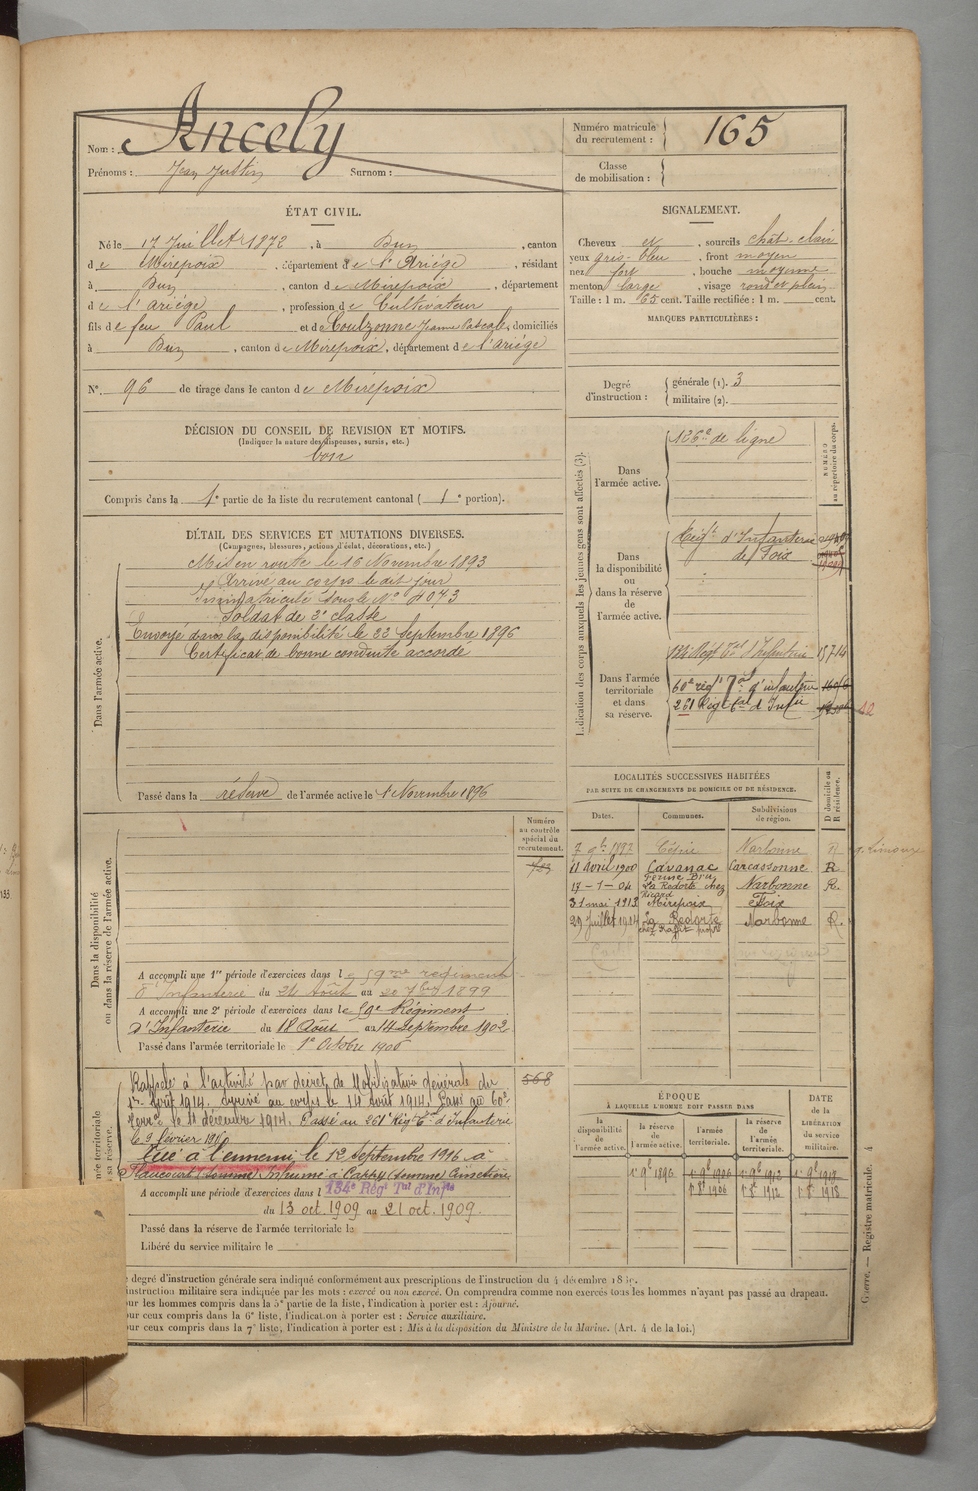 Nom : Ancely
Prénoms : Jean Justin Surnom :
Numéro matricule du recrutement : 165
Classe de mobilisation :
ÉTAT CIVIL.
Né le 17 Juillet 1872, à Bun, canton
de Mirepoix, département de l'Ariége, résidant
à Bun, canton de Mirepoix, département
de l'ariége, profession de Cultivateur
fils de feu Paul et de Coulzonne Jeanne Pascale, domiciliés
à Bun, canton de Mirepoix, département de l'ariége
N° 96 de tirage dans le canton de Mirepoix
SIGNALEMENT.
Cheveux et, sourcils chât. clair
yeux gris-bleu, front moyen
nez fort, bouche moyenne
menton large, visage rond et plein
Taille : 1 m. 65 cent. Taille rectifiée : 1 m. cent.
MARQUES PARTICULIÈRES :
Degré d'instruction : générale (1). 3
militaire (2).
DÉCISION DU CONSEIL DE REVISION ET MOTIFS.
(Indiquer la nature des dispenses, sursis, etc.)
bon
Compris dans la 1e partie de la liste du recrutement cantonal (1e portion).
DÉTAIL DES SERVICES ET MUTATIONS DIVERSES.
(Campagnes, blessures, actions d'éclat, décorations, etc.)
Dans l'armée active.
Mis en route le 16 Novembre 1893
Arrivé au corps le dit jour
Immatriculé sous le N° 4073
Soldat de 2e classe
Envoyé dans la disponibilité le 22 Septembre 1896
Certificat de bonne conduite accordé
Passé dans la réserve de l'armée active le 1 Novembre 1896
Indication des corps auxquels les jeunes gens sont affectés (3).
NUMÉRO au répertoire du corps.
Dans l'armée active.
126e de ligne
Dans la disponibilité ou dans la réserve de l'armée active.
Régt d'Infanterie
de Foix
Dans l'armée territoriale et dans sa réserve.
134 Régt Tal d'Infanterie
60e régt Tal d'infanterie
261 Régt Tal d'Infie
LOCALITÉS SUCCESSIVES HABITÉES
PAR SUITE DE CHANGEMENTS DE DOMICILE OU DE RÉSIDENCE.
Dates. Communes. Subdivisions de région. D domicile ou R résidence.
7 9b 1892 Cépie Narbonne R
11 avril 1900 Cavanac Carcassonne R
17-1-04 La Redorte chez Narbonne R.
31 mai 1913 Mirepoix Foix
29 juillet 1914 La Redorte Narbonne R
Dans la disponibilité ou dans la réserve de l'armée active.
Numéro au contrôle spécial du recrutement.
A accompli une 1re période d'exercices dans le 59me régiment
d'Infanterie du 24 Août au 20 7bre 1899
A accompli une 2e période d'exercices dans le 59e Régiment
d'Infanterie du 18 Août au 14 Septembre 1902
Passé dans l'armée territoriale le 1e Octobre 1906
568
Rappelé à l'activité par decret de Mobilisation générale du
1er Août 1914. Arrivé au corps le 14 août 1914. Passé au 60e
Terral le 11 décembre 1914. Passé au 261e Régt Tal d'Infanterie
le 9 février 1916
Tué à l'ennemi le 12 Septembre 1916 à
Flaucourt (Somme) Inhumé à Cappy (Somme) Cimetière
A accompli une période d'exercices dans l 134e Régt Tal d'Infie
du 13 oct. 1909 au 21 oct. 1909.
Passé dans la réserve de l'armée territoriale le
Libéré du service militaire le
ÉPOQUE
À LAQUELLE L'HOMME DOIT PASSER DANS
la disponibilité de l'armée active. la réserve de l'armée active. l'armée territoriale. la réserve de l'armée territoriale. DATE de la LIBÉRATION du service militaire.
1r 9b 1896 1r 9b 1906 1r 9b 1912
1r 8b 1906 1r 8b 1912 1r 8b 1918
Guerre. — Registre matricule. 4
degré d'instruction générale sera indiqué conformément aux prescriptions de l'instruction du 4 décembre
instruction militaire sera indiquée par les mots : exercé ou non exercé. On comprendra comme non exercés tous les hommes n'ayant pas passé au drapeau.
our les hommes compris dans la 5e partie de la liste, l'indication à porter est : Ajourné.
our ceux compris dans la 6e liste, l'indication à porter est : Service auxiliaire.
our ceux compris dans la 7e liste, l'indication à porter est : Mis à la disposition du Ministre de la Marine. (Art. 4 de la loi.)